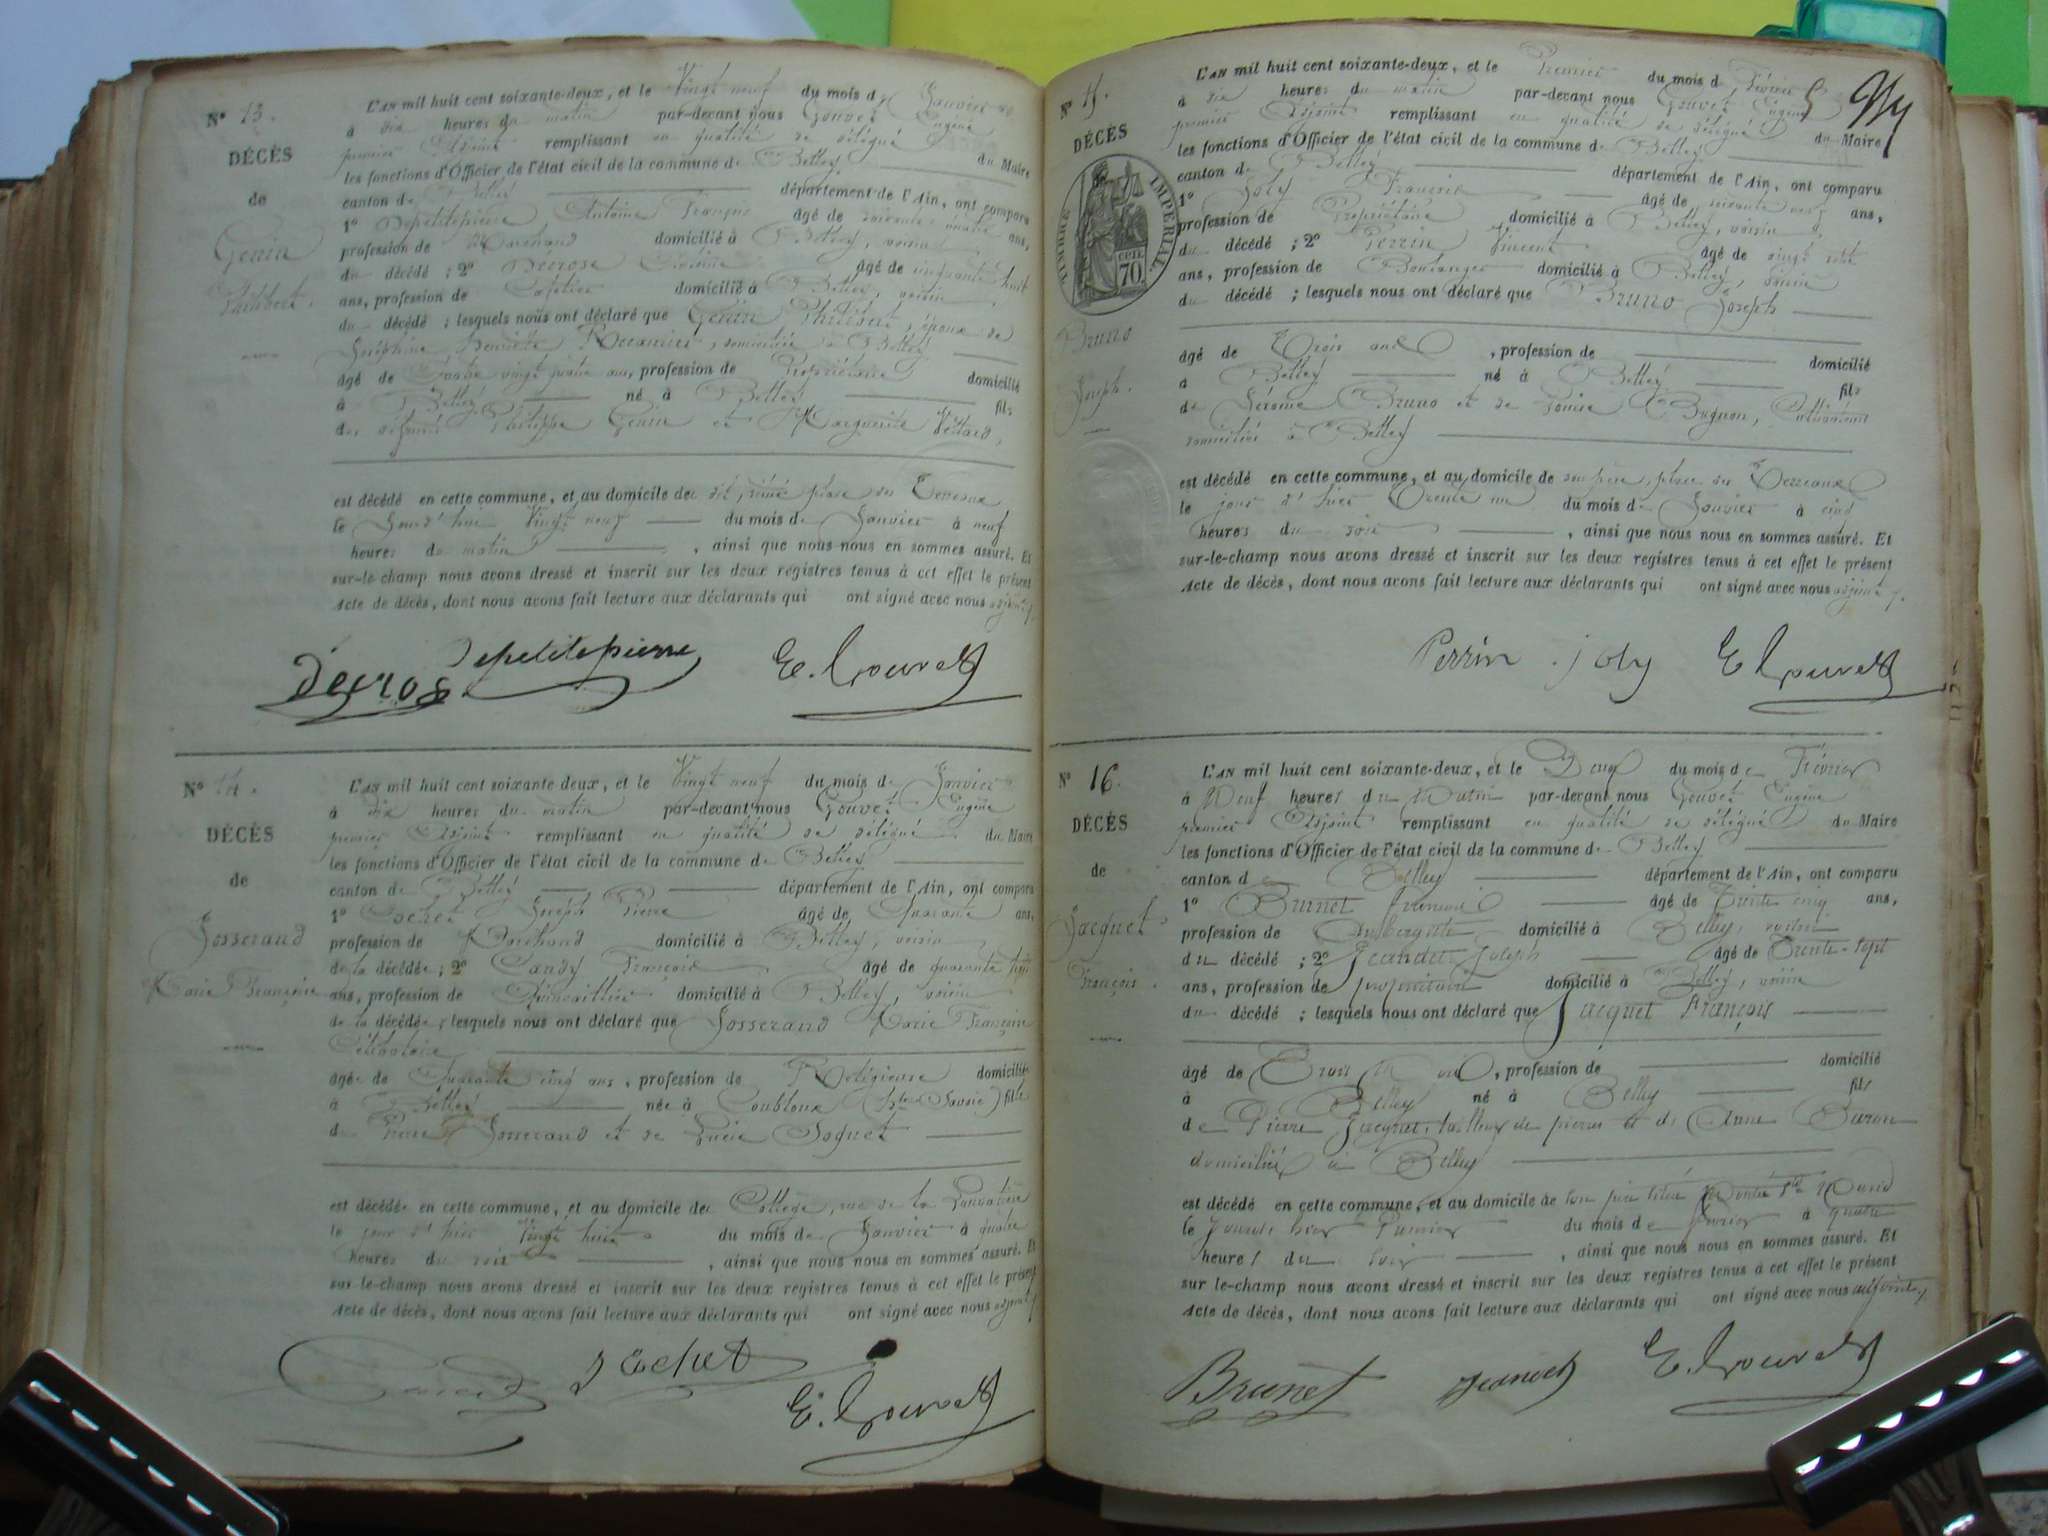 N° 13.
DÉCÈS
de
Genin
Philibert.
L'AN mil huit cent soixante-deux, et le Vingt neuf du mois de Janvier
à dix heures du matin par-devant nous Gouvet Eugène
premier Adjoint remplissant en qualité de délégué du Maire
les fonctions d'Officier de l'état civil de la commune de Belley
canton de Belley département de l'Ain, ont comparu
1° Depetitepierre, Antoine François âgé de soixante quatre ans,
profession de Marchand domicilié à Belley, voisin
du décédé ; 2° âgé de cinquante huit
ans, profession de domicilié à Belley, voisin
du décédé ; lesquels nous ont déclaré que Genin Philibert, époux de
Joséphine Récamier, domicilié à Belley
âgé de Quatre vingt quatre ans, profession de Propriétaire domicilié
à Belley né à Belley fils
des défunts Philippe Genin et Marguerite
est décédé en cette commune, et au domicile de place des Terreaux
le Jour d'hui Vingt neuf du mois de Janvier à neuf
heures du matin , ainsi que nous nous en sommes assuré. Et
sur-le-champ nous avons dressé et inscrit sur les deux registres tenus à cet effet le présent
Acte de décès, dont nous avons fait lecture aux déclarants qui ont signé avec nous adjoint
décros Depetitepierre E. Gouvet
N° 14.
DÉCÈS
de
Josserand
Marie Françoise
L'AN mil huit cent soixante deux, et le Vingt neuf du mois de Janvier
à dix heures du matin par-devant nous Gouvet Eugène
premier Adjoint remplissant en qualité de délégué du Maire
les fonctions d'Officier de l'état civil de la commune de Belley
canton de Belley département de l'Ain, ont comparu
1° Cochet Joseph Pierre âgé de Quarante ans,
profession de Marchand domicilié à Belley, voisin
de la décédée ; 2° Candy François âgé de quarante
ans, profession de Quincaillier domicilié à Belley, voisin
de la décédée ; lesquels nous ont déclaré que Josserand Marie Françoise
Célibataire
âgée de Quarante cinq ans, profession de Religieuse domiciliée
à Belley née à Combloux (Hte Savoie) fille
de Pierre Josserand et de Lucie Soquet
est décédée en cette commune, et au domicile de Collège, rue de la
le jour d'hier Vingt huit du mois de Janvier à quatre
heures du soir , ainsi que nous nous en sommes assuré. Et
sur le-champ nous avons dressé et inscrit sur les deux registres tenus à cet effet le présent
Acte de décès, dont nous avons fait lecture aux déclarants qui ont signé avec nous adjoint
E. Gouvet
N° 15.
DÉCÈS
TIMBRE IMPÉRIAL
70
Bruno
Joseph.
L'AN mil huit cent soixante-deux, et le Premier du mois de Février
à dix heures du matin par-devant nous Gouvet Eugène
premier Adjoint remplissant en qualité de délégué du Maire
les fonctions d'Officier de l'état civil de la commune de Belley
canton de Belley département de l'Ain, ont comparu
1° Joly François âgé de soixante neuf ans,
profession de Propriétaire domicilié à Belley, voisin
du décédé ; 2° Perrin Vincent âgé de vingt sept
ans, profession de Boulanger domicilié à Belley, voisin
du décédé ; lesquels nous ont déclaré que Bruno Joseph
âgé de Trois ans , profession de domicilié
à Belley né à Belley fils
de Jérôme Bruno et de Louise Bugnon, Cultivateurs
domiciliés à Belley
est décédé en cette commune, et au domicile de son père, place des Terreaux
le jour d'hier Trente un du mois de Janvier à cinq
heures du soir , ainsi que nous nous en sommes assuré. Et
sur-le-champ nous avons dressé et inscrit sur les deux registres tenus à cet effet le présent
Acte de décès, dont nous avons fait lecture aux déclarants qui ont signé avec nous adjoint
Perrin joly E Gouvet
N° 16.
DÉCÈS
de
Jacquet
François.
L'AN mil huit cent soixante-deux, et le Deux du mois de Février
à Neuf heures du Matin par-devant nous Gouvet Eugène
premier Adjoint remplissant en qualité de délégué du Maire
les fonctions d'Officier de l'état civil de la commune de Belley
canton de Belley département de l'Ain, ont comparu
1° Brunet François âgé de Trente cinq ans,
profession de Aubergiste domicilié à Belley, voisin
du décédé ; 2° Jeandet Joseph âgé de Trente-sept
ans, profession de propriétaire domicilié à Belley, voisin
du décédé ; lesquels nous ont déclaré que Jacquet François
âgé de Trois Mois, profession de domicilié
à Belley né à Belley fils
de Pierre Jacquet, tailleur de pierres et de Anne
domiciliés à Belley
est décédé en cette commune, et au domicile de son père
le Jour de hier Premier du mois de février à quatre
heures du soir , ainsi que nous nous en sommes assuré. Et
sur le-champ nous avons dressé et inscrit sur les deux registres tenus à cet effet le présent
Acte de décès, dont nous avons fait lecture aux déclarants qui ont signé avec nous adjoint
Brunet Jeandet E. Gouvet